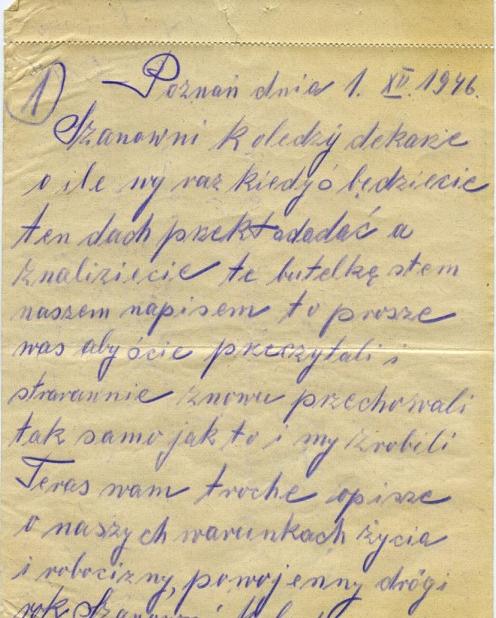 1
Poznań dnia 1. XII. 1946.
Szanowni koledzy dekarze
o ile wy raz kiedyś będziecie
ten dach przekładadać a
znaliziecie te butelkę stem
naszem napisem to prosze
was aby ście przeczytali i
starannie znowu przechowali
tak samo jak to i my zrobili
Teras wam troche opisze
o naszych warunkach życia
i robocizny, powojenny drógi
rok Szanowni